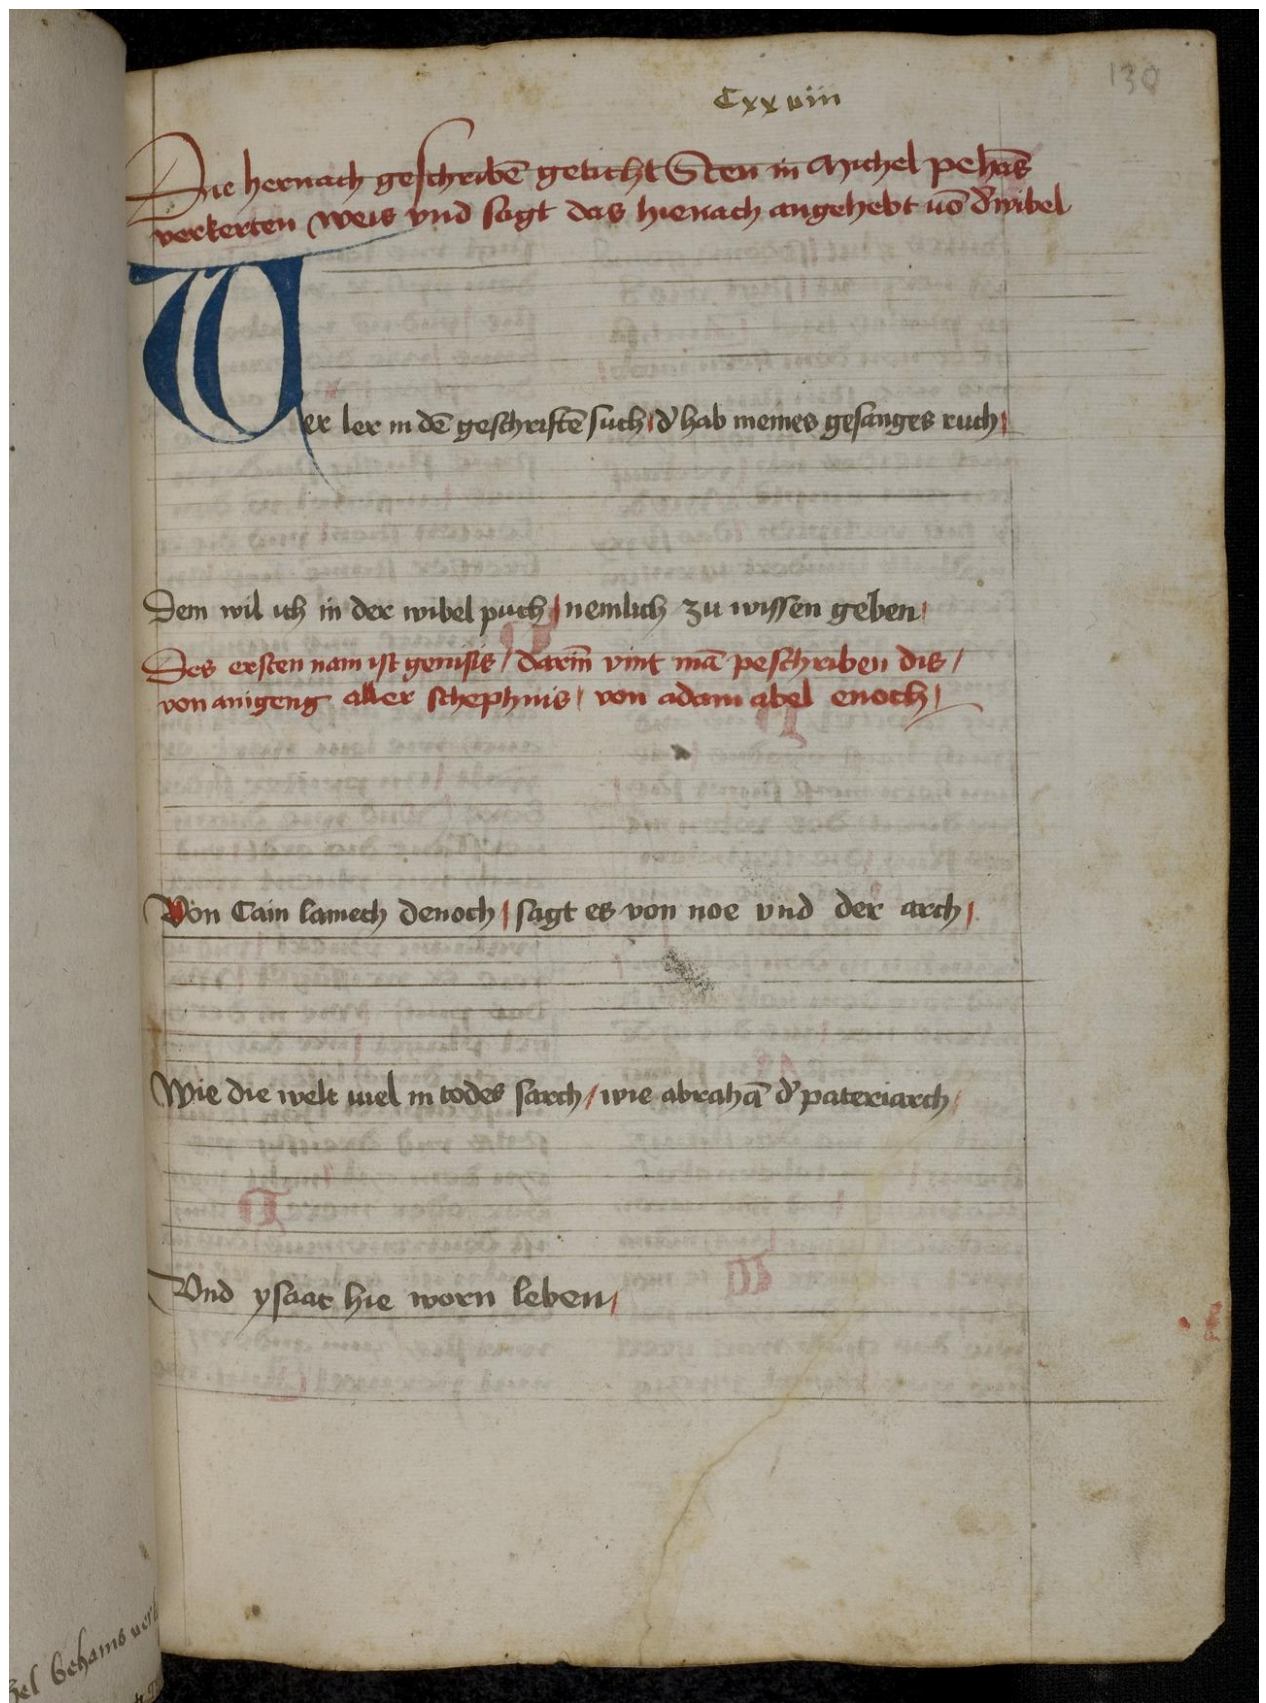 130
Cxxviii
Die hernach geschribē geticht Sten in Michel pehās
verkerten weis vnd sagt das hienach angehebt uō d' wibel
Wer ler in dē geschriftē such / d' hab meines gesanges ruch /
Dem wil ich in der wibel puch / nemlich zu wissen geben /
Des ersten nam ist genisis / darin̄ vint mā peschriben dis /
von anigeng aller schephnis / von adam abel enoch /
Von Cain lamech denoch / sagt es von noe vnd der arch /
Wie die welt uiel in todes sarch / wie abrahā d' pateriarch /
Vnd ysaac hie worn leben /
behams